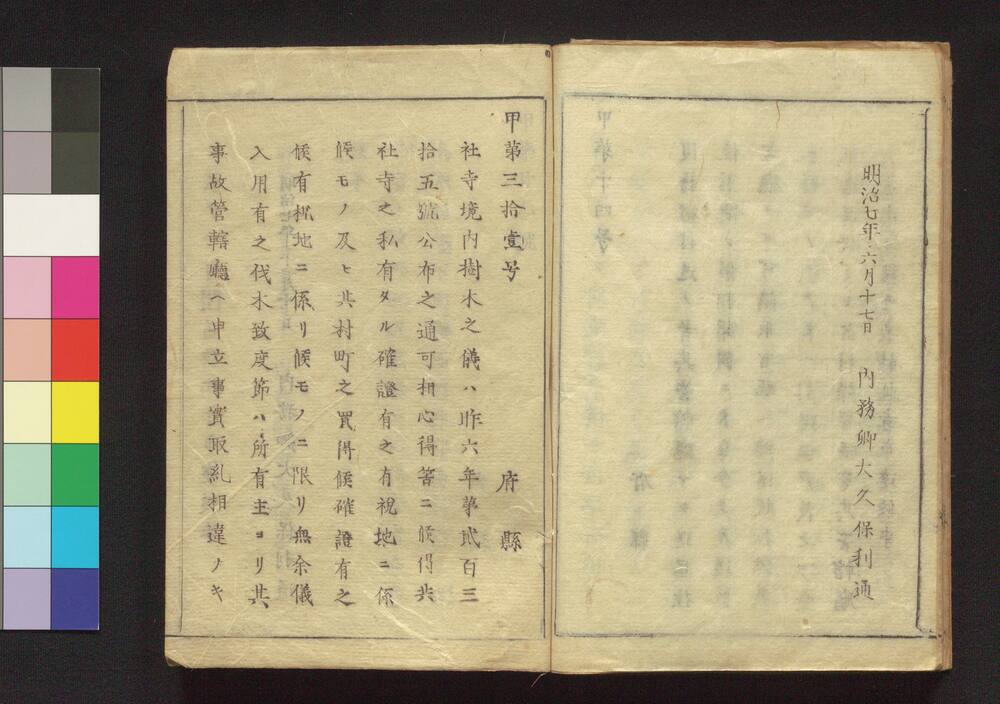 明治七年六月十七日　内務卿大久保利通
甲第三拾壹号
府縣
社寺境内樹木之儀ハ昨六年第貳百三
拾五號公布之通可相心得筈ニ候得共
社寺之私有タル確證有之有税地ニ係
候モノ及ヒ其村町之買得候確證有之
候有税地ニ係リ候モノニ限リ無余儀
入用有之伐木致度節ハ所有主ヨリ其
事故管轄廳ヘ申立事實取糺相違ノキ